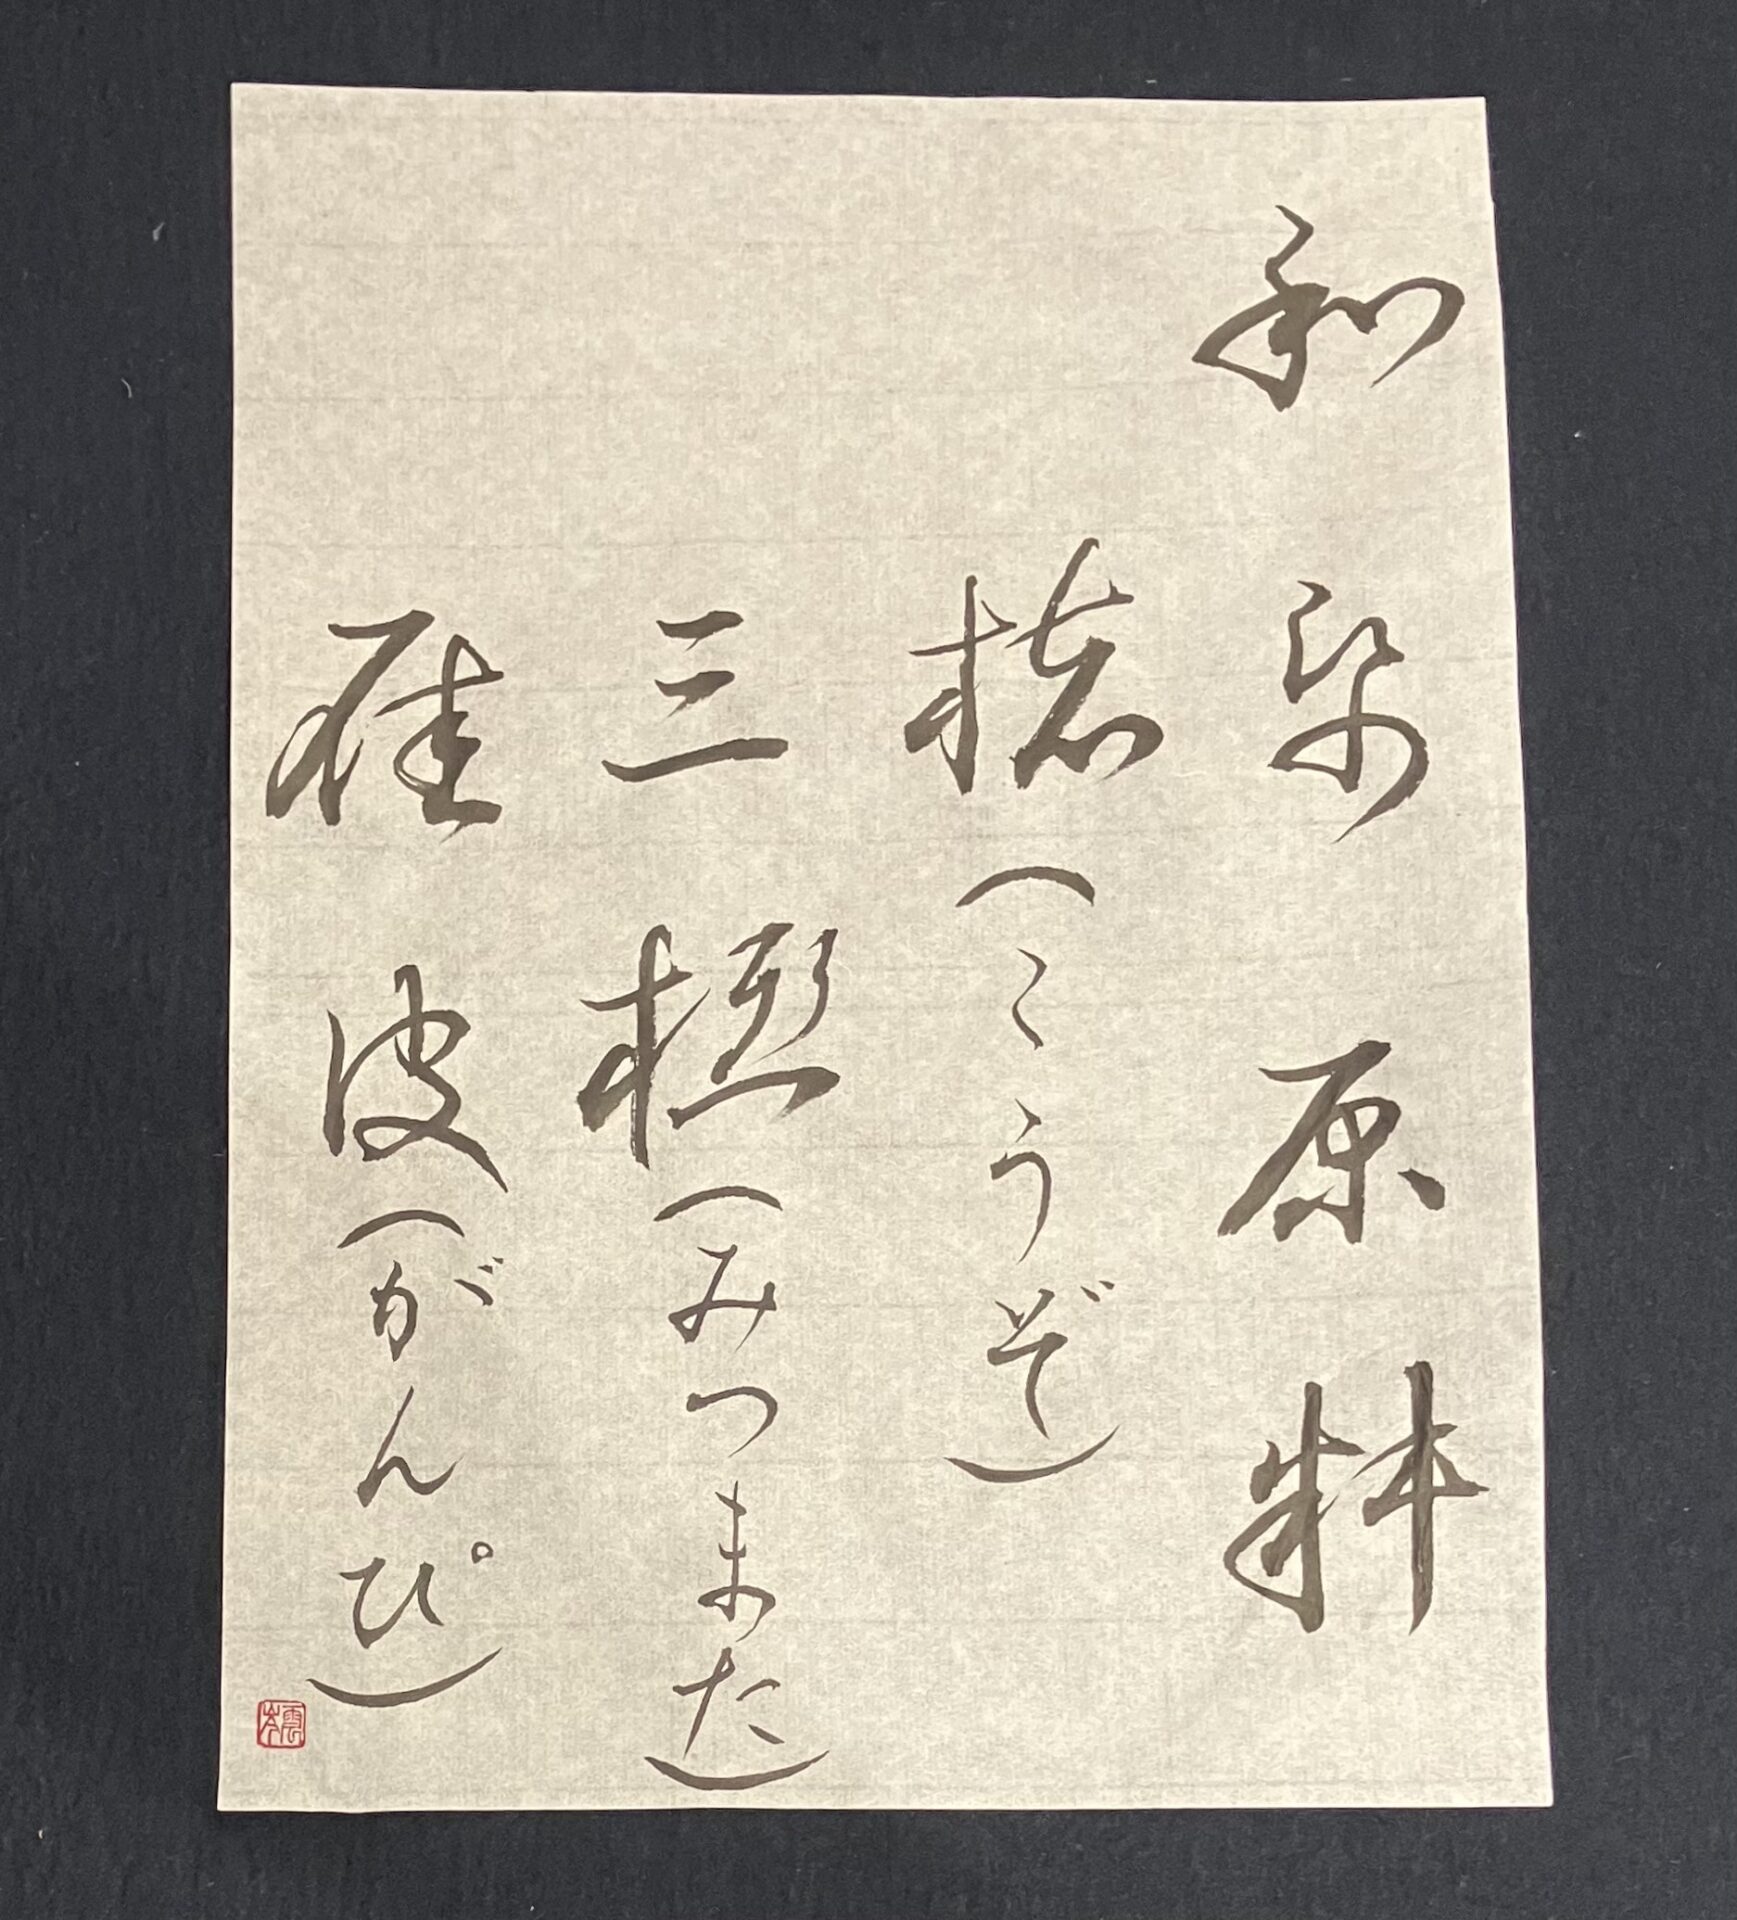 和紙原料
楮（こうぞ）
三椏（みつまた）
雁皮（がんぴ）